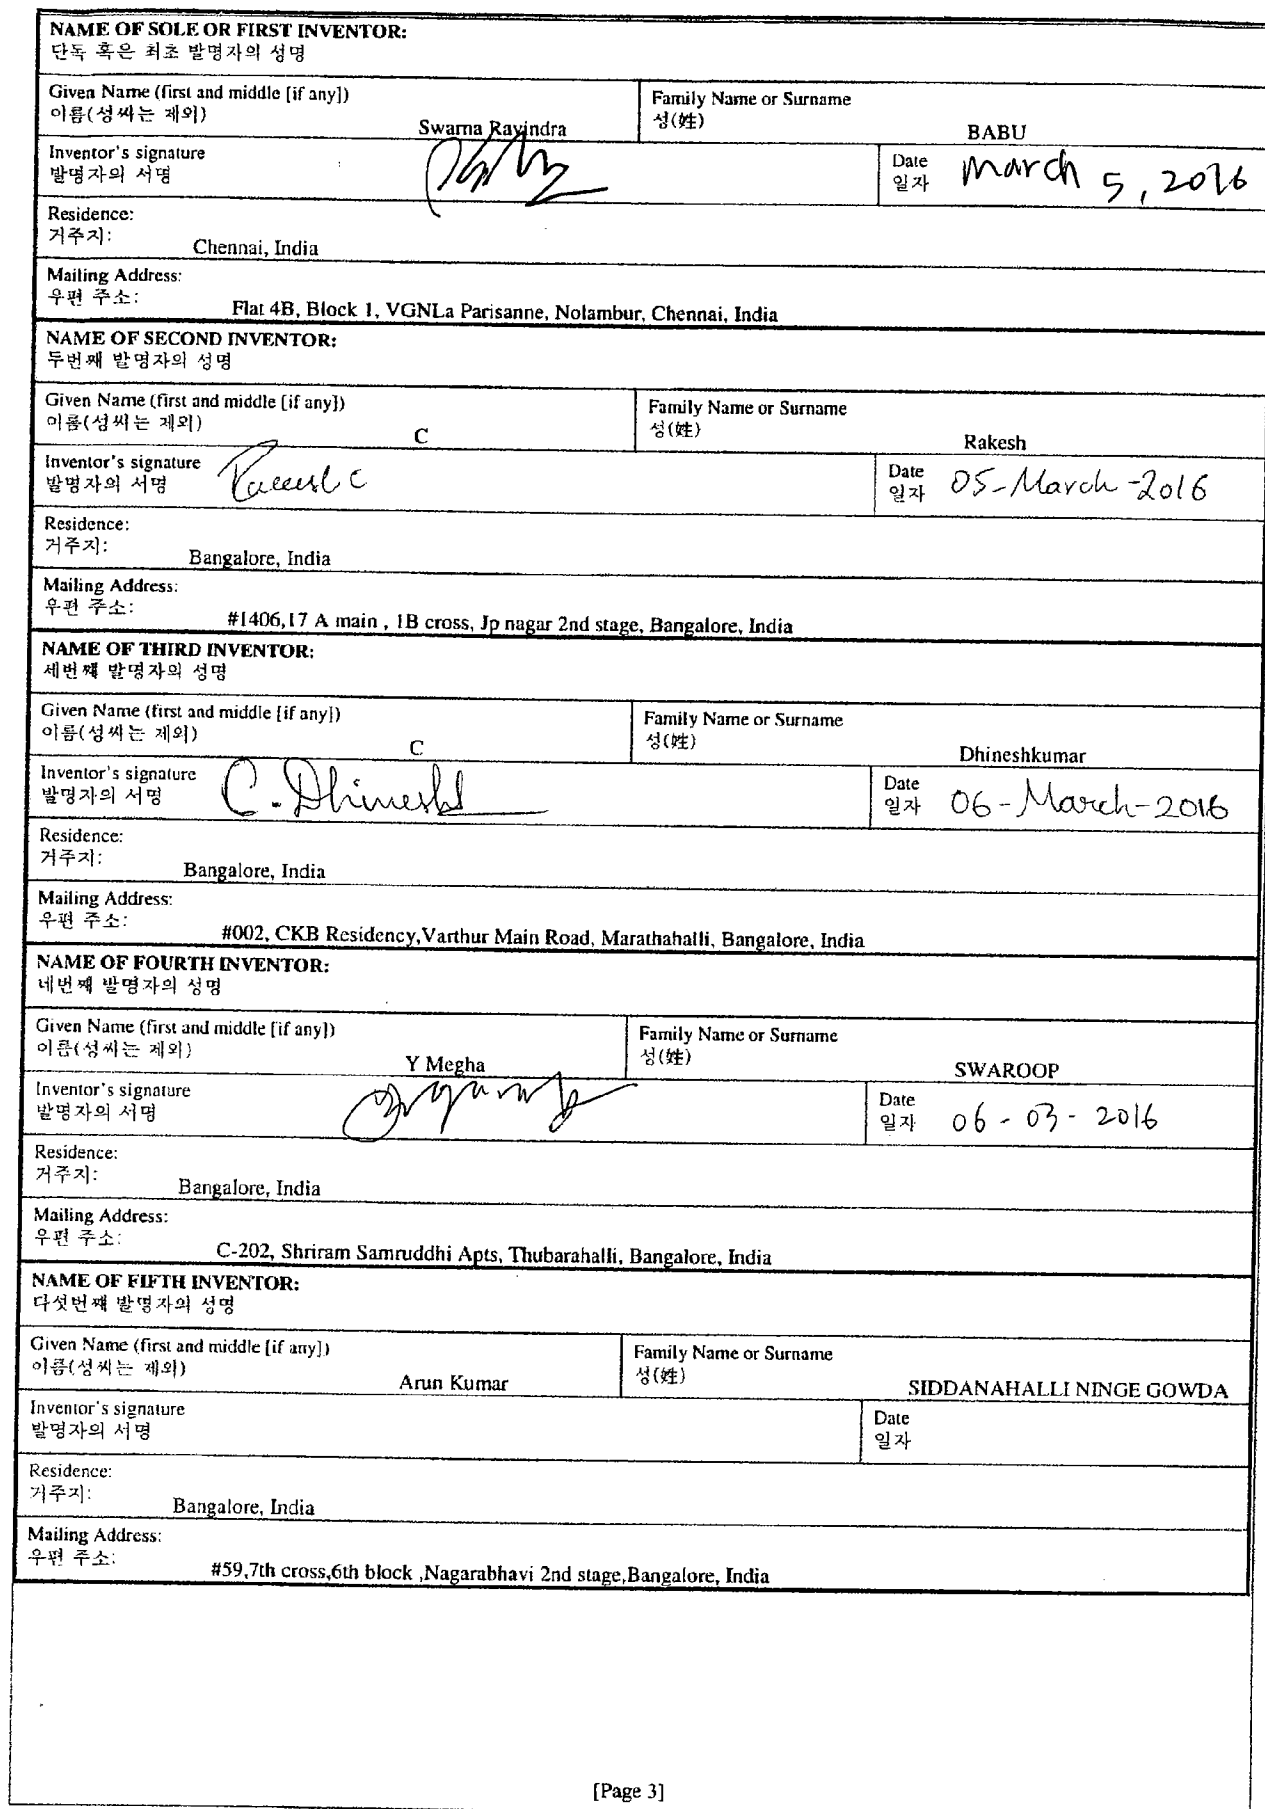 NAME OF SOLE OR FIRST INVENTOR:
단독 혹은 최초 발명자의 성명
Given Name (first and middle [if any])
이름(성씨는 제외)
Swarna Ravindra
Family Name or Surname
성(姓)
BABU
Inventor's signature
발명자의 서명
Date
일자
March 5, 2016
Residence:
거주지:
Chennai, India
Mailing Address:
우편 주소:
Flat 4B, Block 1, VGNLa Parisanne, Nolambur, Chennai, India
NAME OF SECOND INVENTOR:
두번째 발명자의 성명
Given Name (first and middle [if any])
이름(성씨는 제외)
C
Family Name or Surname
성(姓)
Rakesh
Inventor's signature
발명자의 서명
Date
일자
05-March-2016
Residence:
거주지:
Bangalore, India
Mailing Address:
우편 주소:
#1406,17 A main , 1B cross, Jp nagar 2nd stage, Bangalore, India
NAME OF THIRD INVENTOR:
세번째 발명자의 성명
Given Name (first and middle [if any])
이름(성씨는 제외)
C
Family Name or Surname
성(姓)
Dhineshkumar
Inventor's signature
발명자의 서명
C. Dhinesh
Date
일자
06-March-2016
Residence:
거주지:
Bangalore, India
Mailing Address:
우편 주소:
#002, CKB Residency,Varthur Main Road, Marathahalli, Bangalore, India
NAME OF FOURTH INVENTOR:
네번째 발명자의 성명
Given Name (first and middle [if any])
이름(성씨는 제외)
Y Megha
Family Name or Surname
성(姓)
SWAROOP
Inventor's signature
발명자의 서명
Date
일자
06-03-2016
Residence:
거주지:
Bangalore, India
Mailing Address:
우편 주소:
C-202, Shriram Samruddhi Apts, Thubarahalli, Bangalore, India
NAME OF FIFTH INVENTOR:
다섯번째 발명자의 성명
Given Name (first and middle [if any])
이름(성씨는 제외)
Arun Kumar
Family Name or Surname
성(姓)
SIDDANAHALLI NINGE GOWDA
Inventor's signature
발명자의 서명
Date
일자
Residence:
거주지:
Bangalore, India
Mailing Address:
우편 주소:
#59,7th cross,6th block ,Nagarabhavi 2nd stage,Bangalore, India
[Page 3]